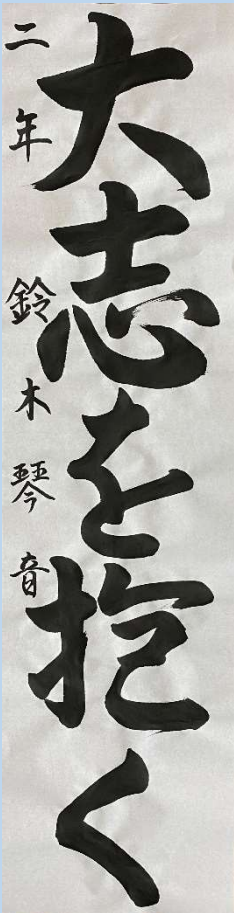 大志を抱く
二年 鈴木琴音